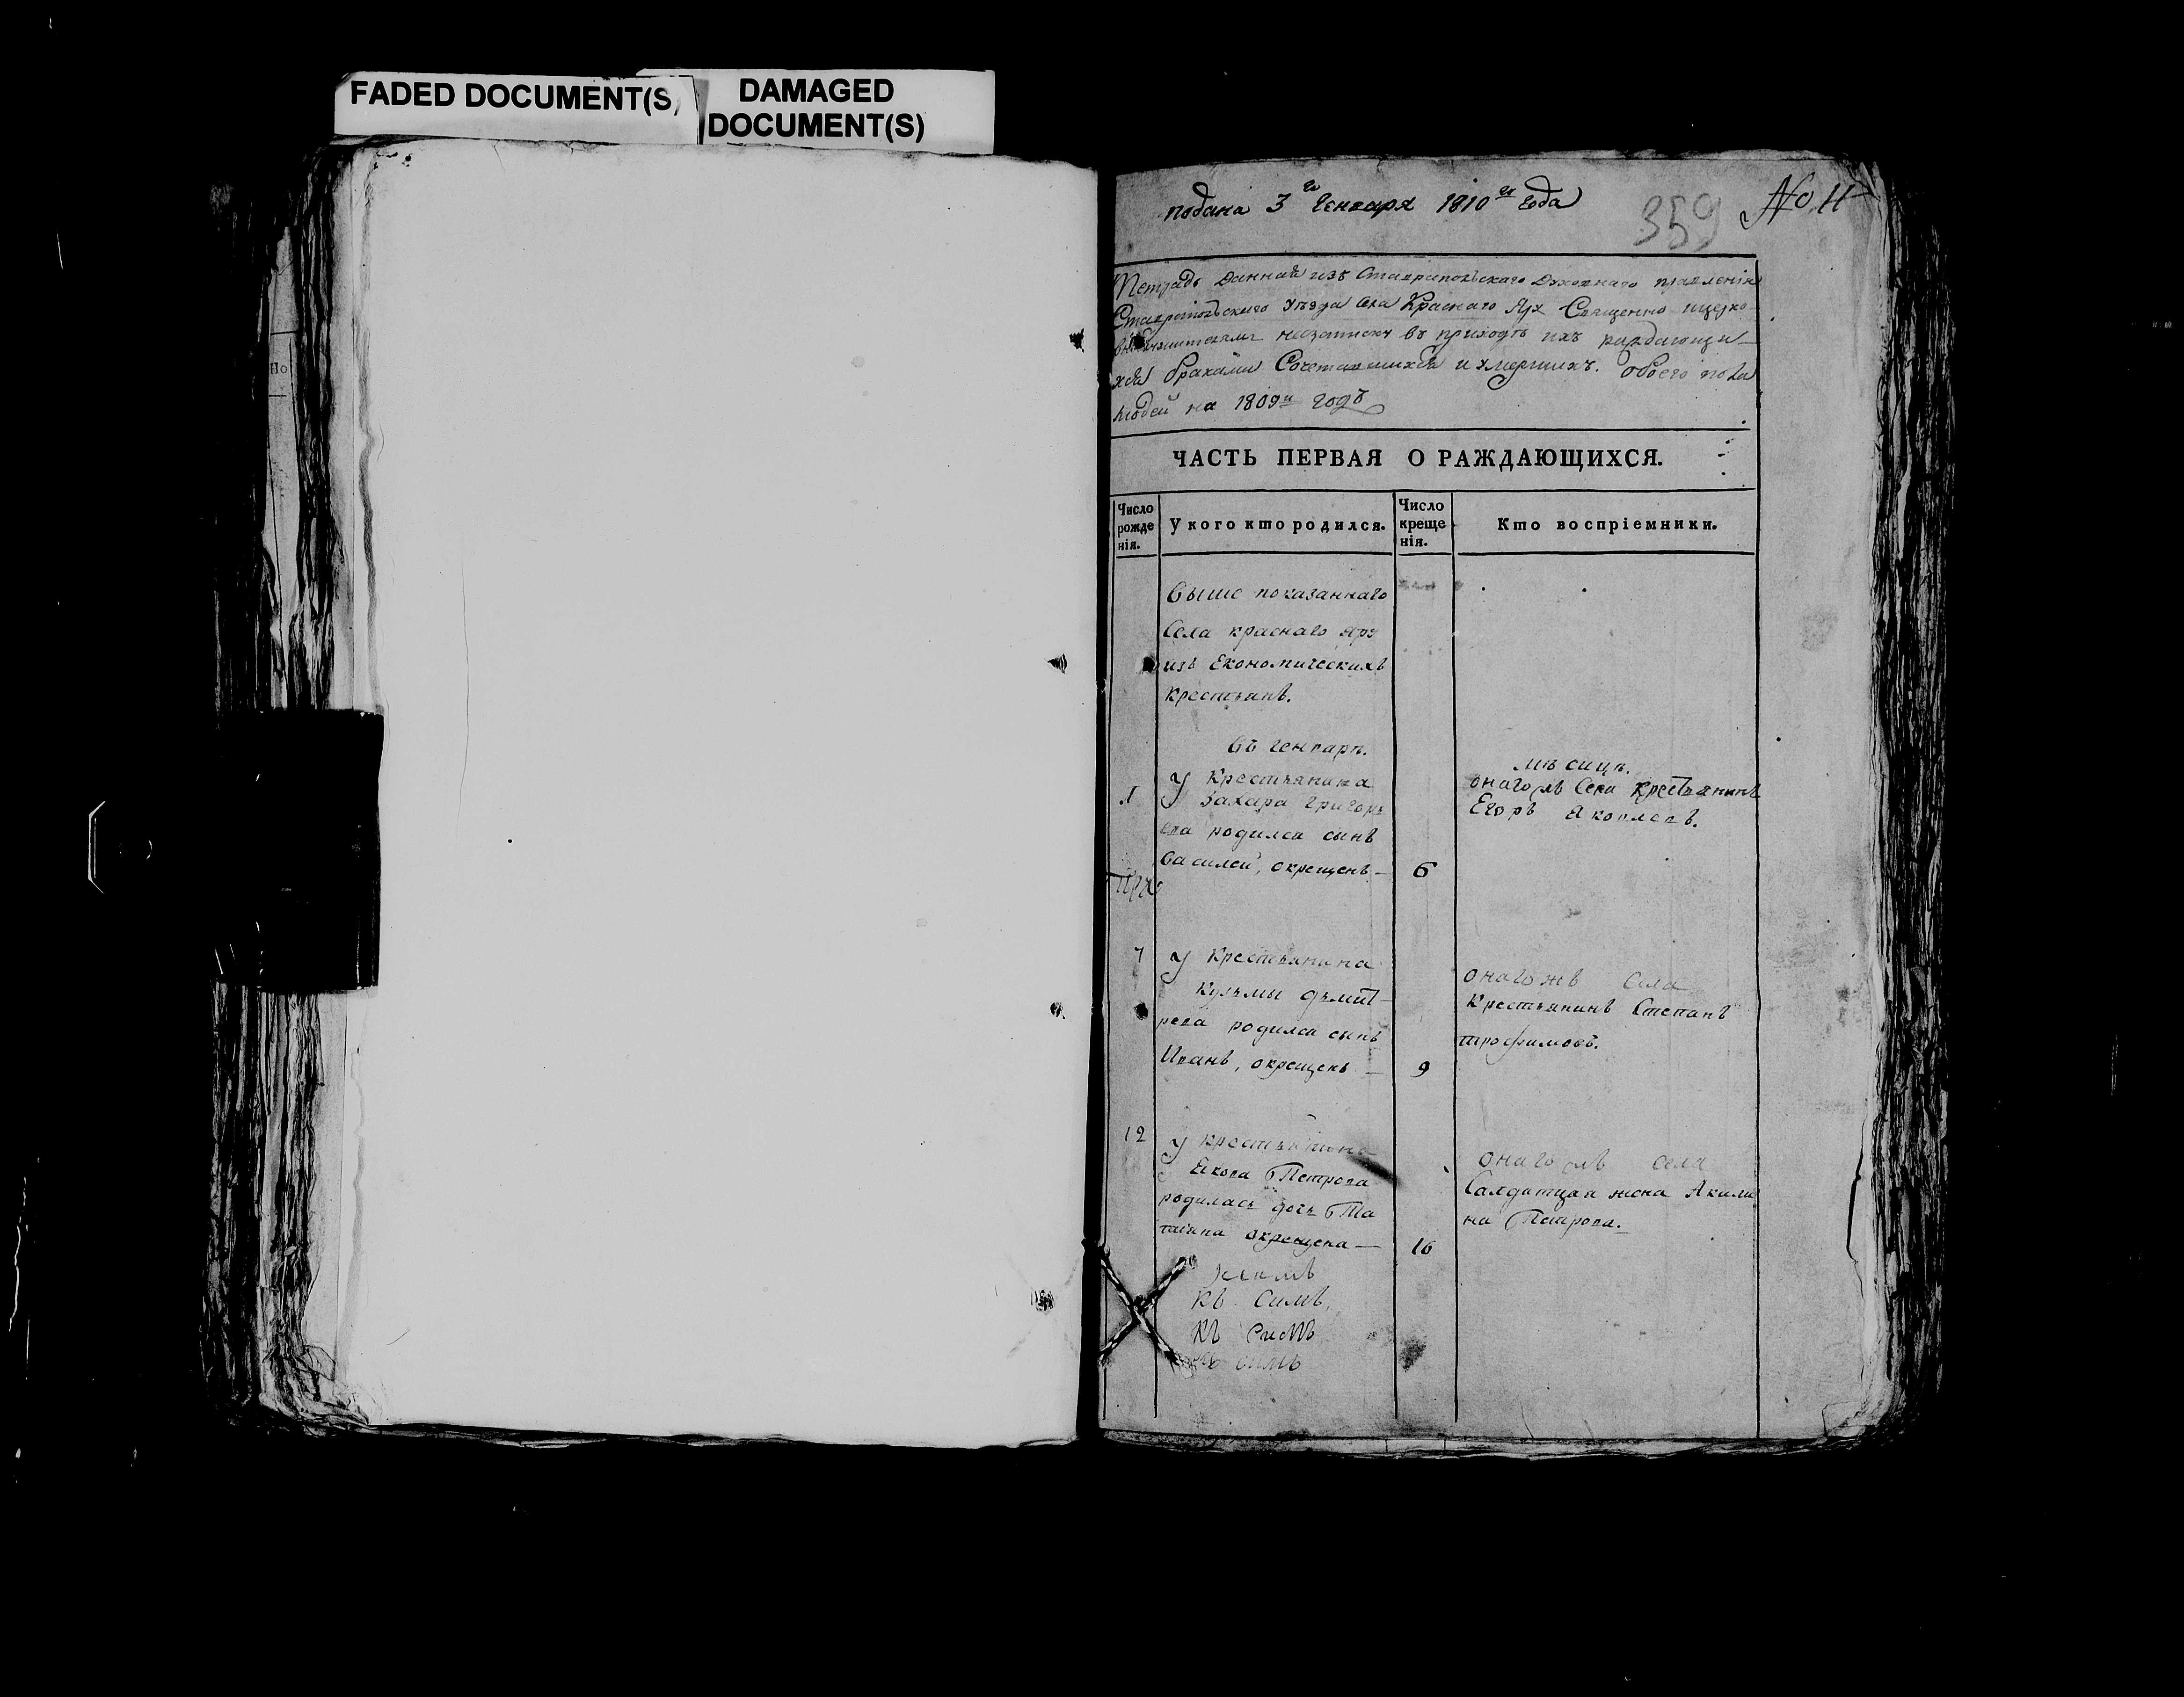 FADED DOCUMENT(S)
DAMAGED
DOCUMENT(S)
подана 3го Генваря 1810го года
359
No 11
Тетрадь Данная изъ Ставропольскаго Духовнаго правленія
Ставропольскаго Уезда Села Краснаго Яру Священно ицерко
въ приходѣ ихъ раждающи-
хся браками Сочетавшихся и умершихъ. обоего пола
людей на 1809й годъ
ЧАСТЬ ПЕРВАЯ О РАЖДАЮЩИХСЯ.
Число
рожде
нія.
У кого кто родился.
Число
креще
нія.
Кто воспріемники.
Выше показаннаго
Села краснаго яру
изъ Економическихъ
крестьянъ.
Въ генварѣ.
мѣсицѣ.
1
У Крестьянина
Захара Григорь
ева родился сынъ
Василей, окрещенъ —
6
онагожъ Села крестьянинъ
Егоръ Яковлевъ.
7
У Крестьянина
Кузьмы дъмит-
рева родился сынъ
Иванъ, окрещенъ —
9
онагожъ Села
Крестьянинъ Степанъ
трофимовъ.
12
У крестьянина
Петрова
родилась дочь Та
тьяна окрещена —
16
онагожъ села
Салдатцкая жена Акили
на Петрова.
Къ Симъ
Къ Симъ